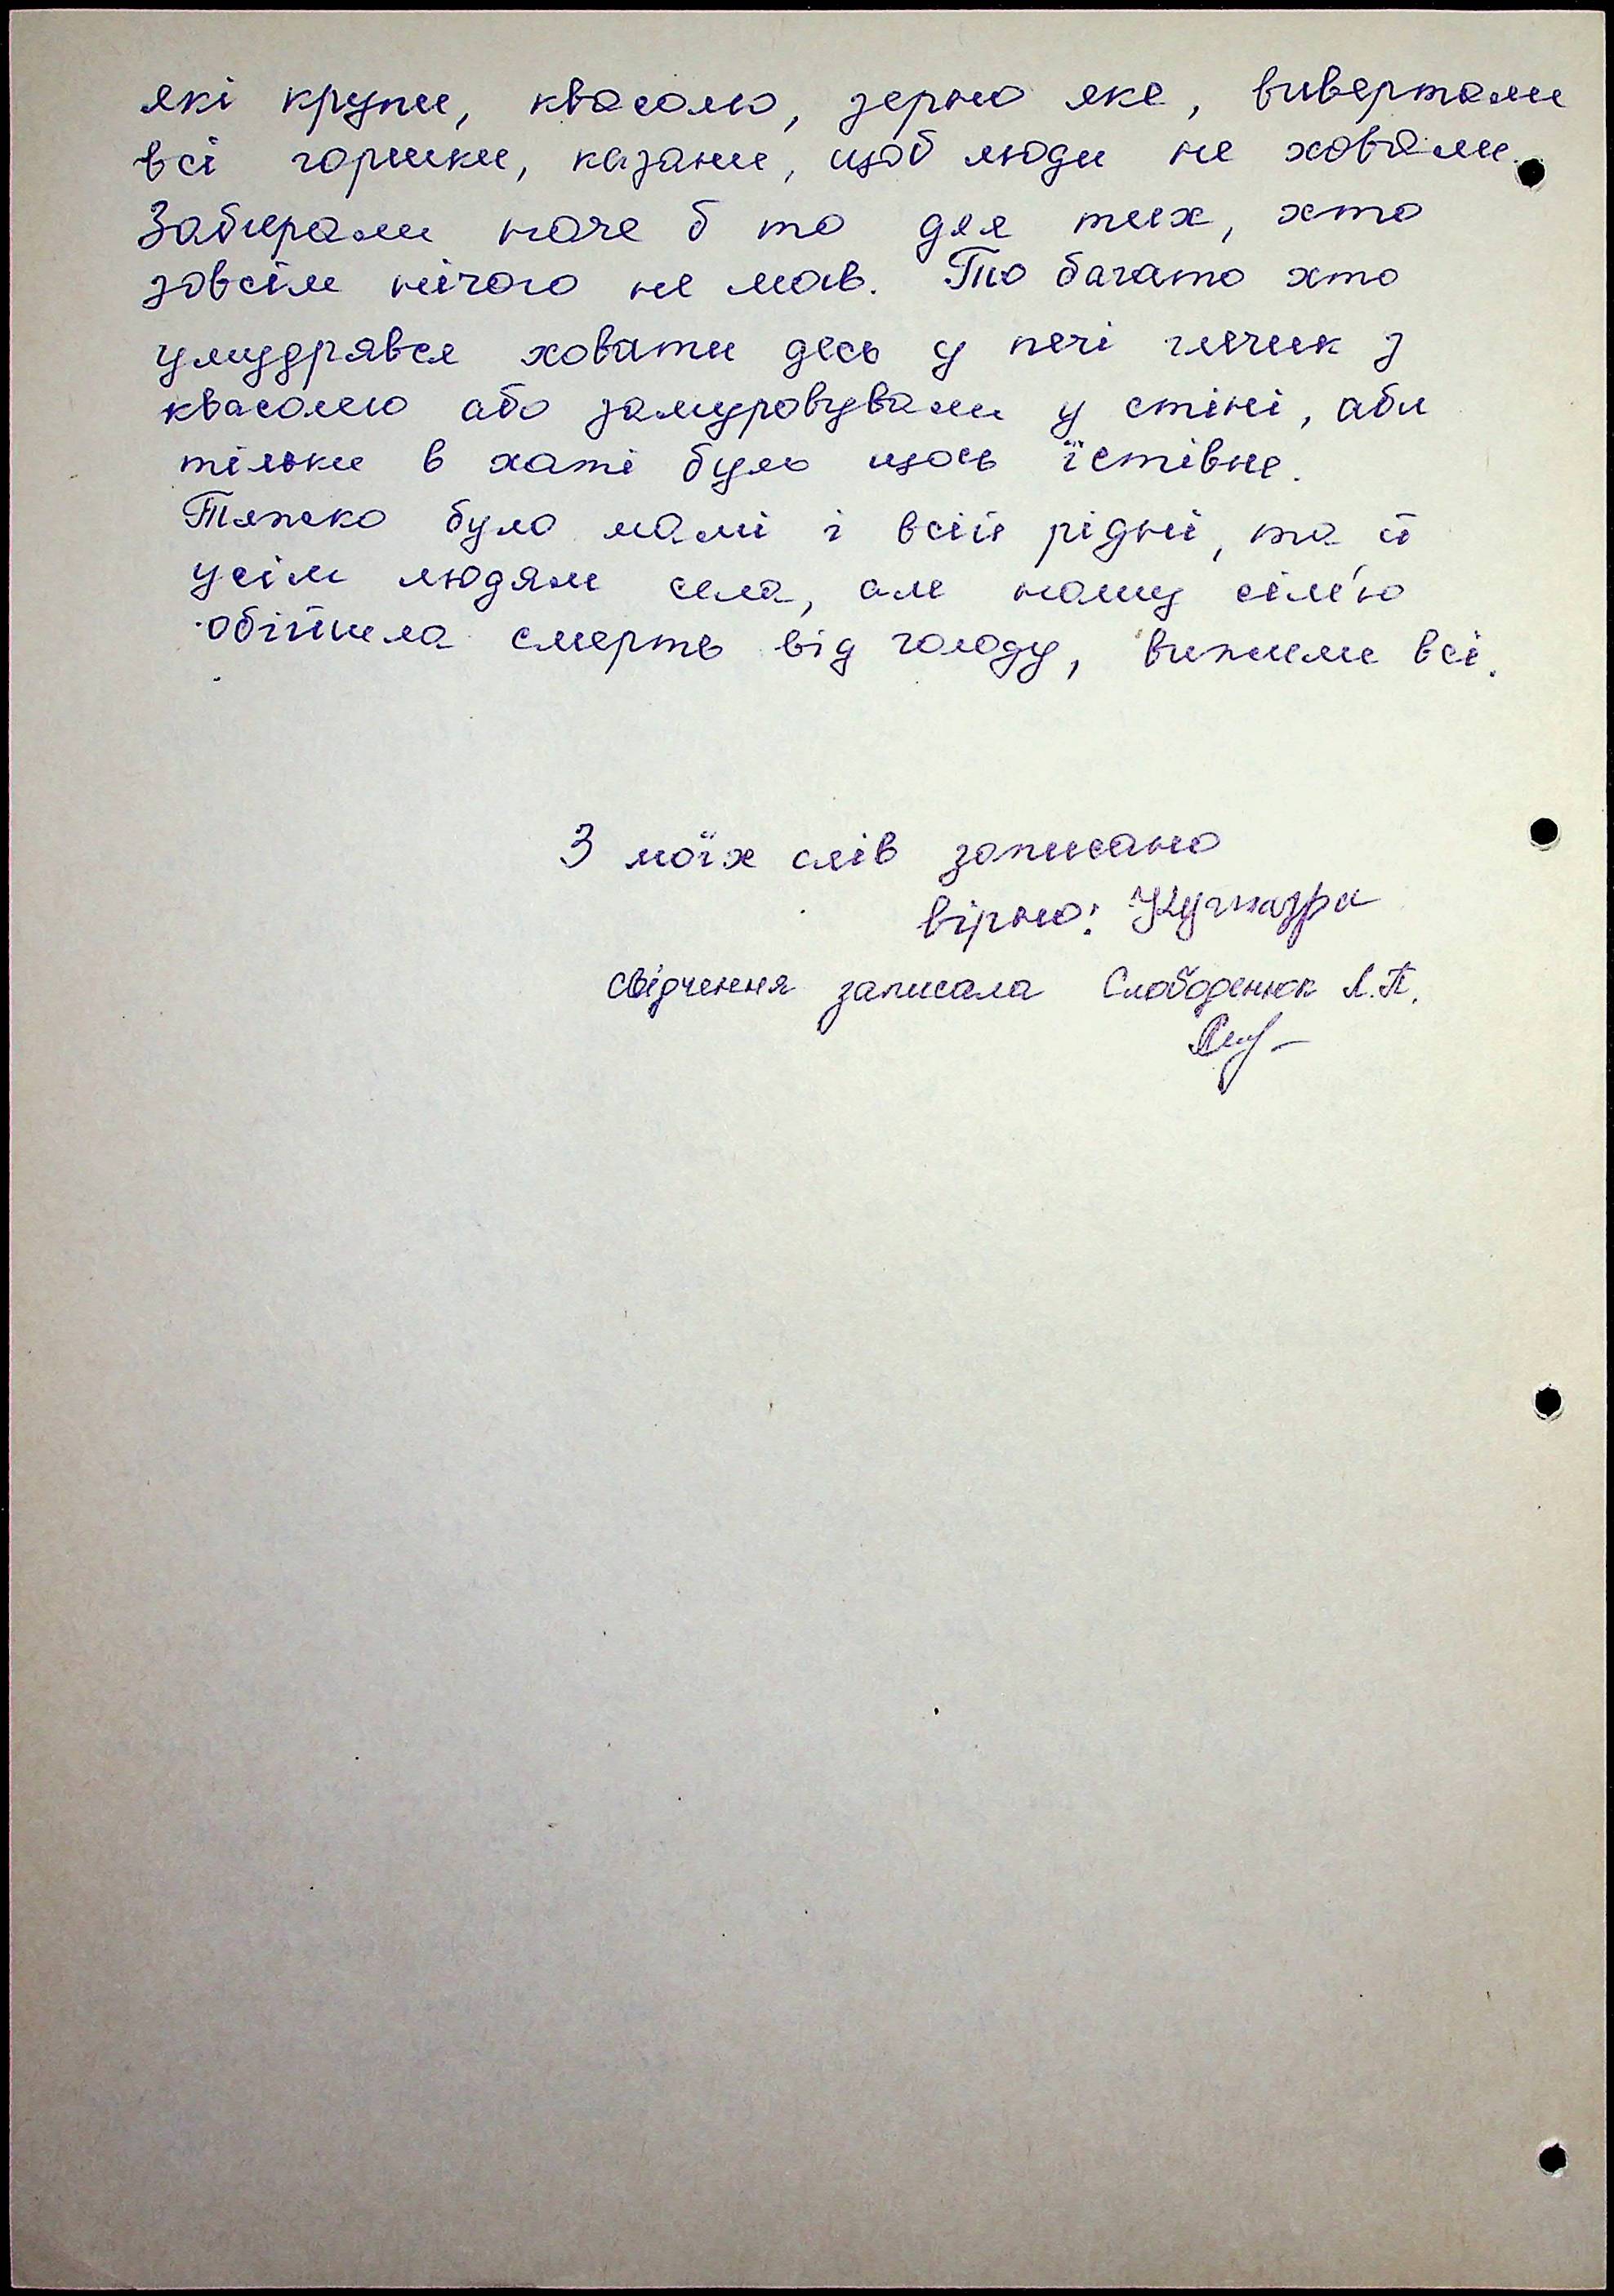 які крупи, квасолю, зерно яке, вивертали
всі горшки, казани, щоб люди не ховали.
Забирали наче б то для тих, хто
зовсім нічого не мав. То багато хто
умудрявся ховати десь у печі глечик з
квасолею або замуровували у стіні, аби
тільки в хаті було щось їстівне.
Тяжко було мамі і всій рідні, та й
усім людям села, але нашу сім'ю
обійшла смерть від голоду, вижили всі.
З моїх слів записано
вірно:
свідчення записала Слободенюк Л.П.